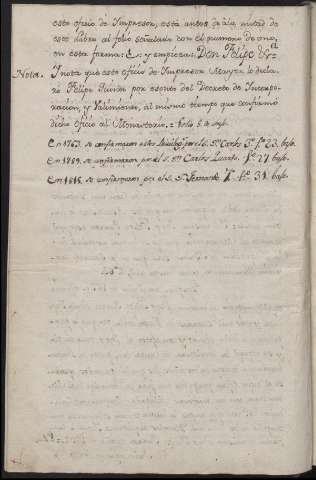 este oficio de Impresor, está antes de la mitad de
este libro al folio señalado con el numero de oro,
en esta forma: y empieza: Don Felipe &ra
Nota. Y nota que este oficio de Impresor Mayor lo declaró
Felipe Quinto por esento del Decreto de Incorporacion,
y Valimiento, al mismo tiempo que confirmó
dicho oficio al Monasterio.
En 1763. se confirmaron estos Privilegios por el S. Dn. Carlos 3º fº 23. bas.
En 1789. se confirmaron por el S. Dn. Carlos Quarto. fº 27 bas.
En 1816. se confirmaron por el S. Dn. Fernando 7. fº 31. bas.